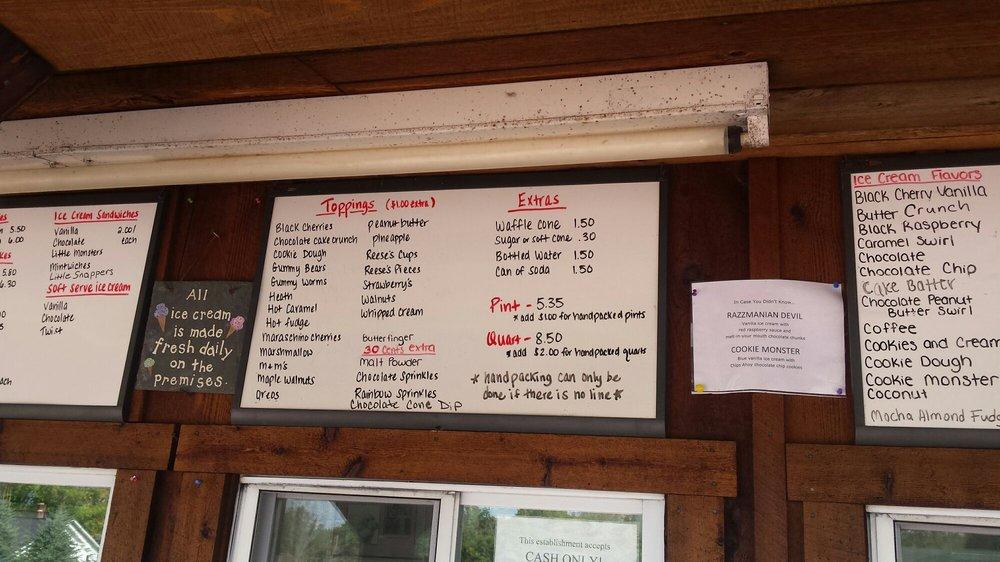 5.50
6.00
5.80
6.30
Ice Cream Sandwiches
Vanilla 2.00/
Chocolate each
Little Monsters
Mintwiches
Little Snappers
Soft Serve ice cream
Vanilla
Chocolate
Twist
All
ice cream
is made
fresh daily
on the
premises.
Toppings ($1.00 extra)
Black Cherries
Chocolate cake crunch
Cookie Dough
Gummy Bears
Gummy Worms
Heath
Hot Caramel
Hot fudge
maraschino cherries
Marshmallow
m&m's
Maple Walnuts
Oreos
peanut butter
pineapple
Reese's Cups
Reese's Pieces
Strawberry's
Walnuts
Whipped cream
Butterfinger
30 Cents extra
Malt Powder
Chocolate Sprinkles
Rainbow Sprinkles
Chocolate Cone Dip
Extras
Waffle Cone 1.50
Sugar or soft cone .30
Bottled Water 1.50
Can of Soda 1.50
Pint - 5.35
* add $1.00 for handpacked pints
Quart - 8.50
*add $2.00 for handpacked quarts
* handpacking can only be
done if there is no line*
In Case You Didn't Know...
RAZZMANIAN DEVIL
Vanilla ice cream with
red raspberry sauce and
melt-in-your mouth chocolate chunks
COOKIE MONSTER
Blue vanilla ice cream with
Chips Ahoy chocolate chip cookies
Ice Cream Flavors
Black Cherry Vanilla
Butter Crunch
Black Raspberry
Caramel Swirl
Chocolate
Chocolate Chip
Cake Batter
Chocolate Peanut
Butter Swirl
Coffee
Cookies and Cream
Cookie Dough
Cookie monster
Coconut
Mocha Almond Fudg
This establishment accepts
CASH ONLY!